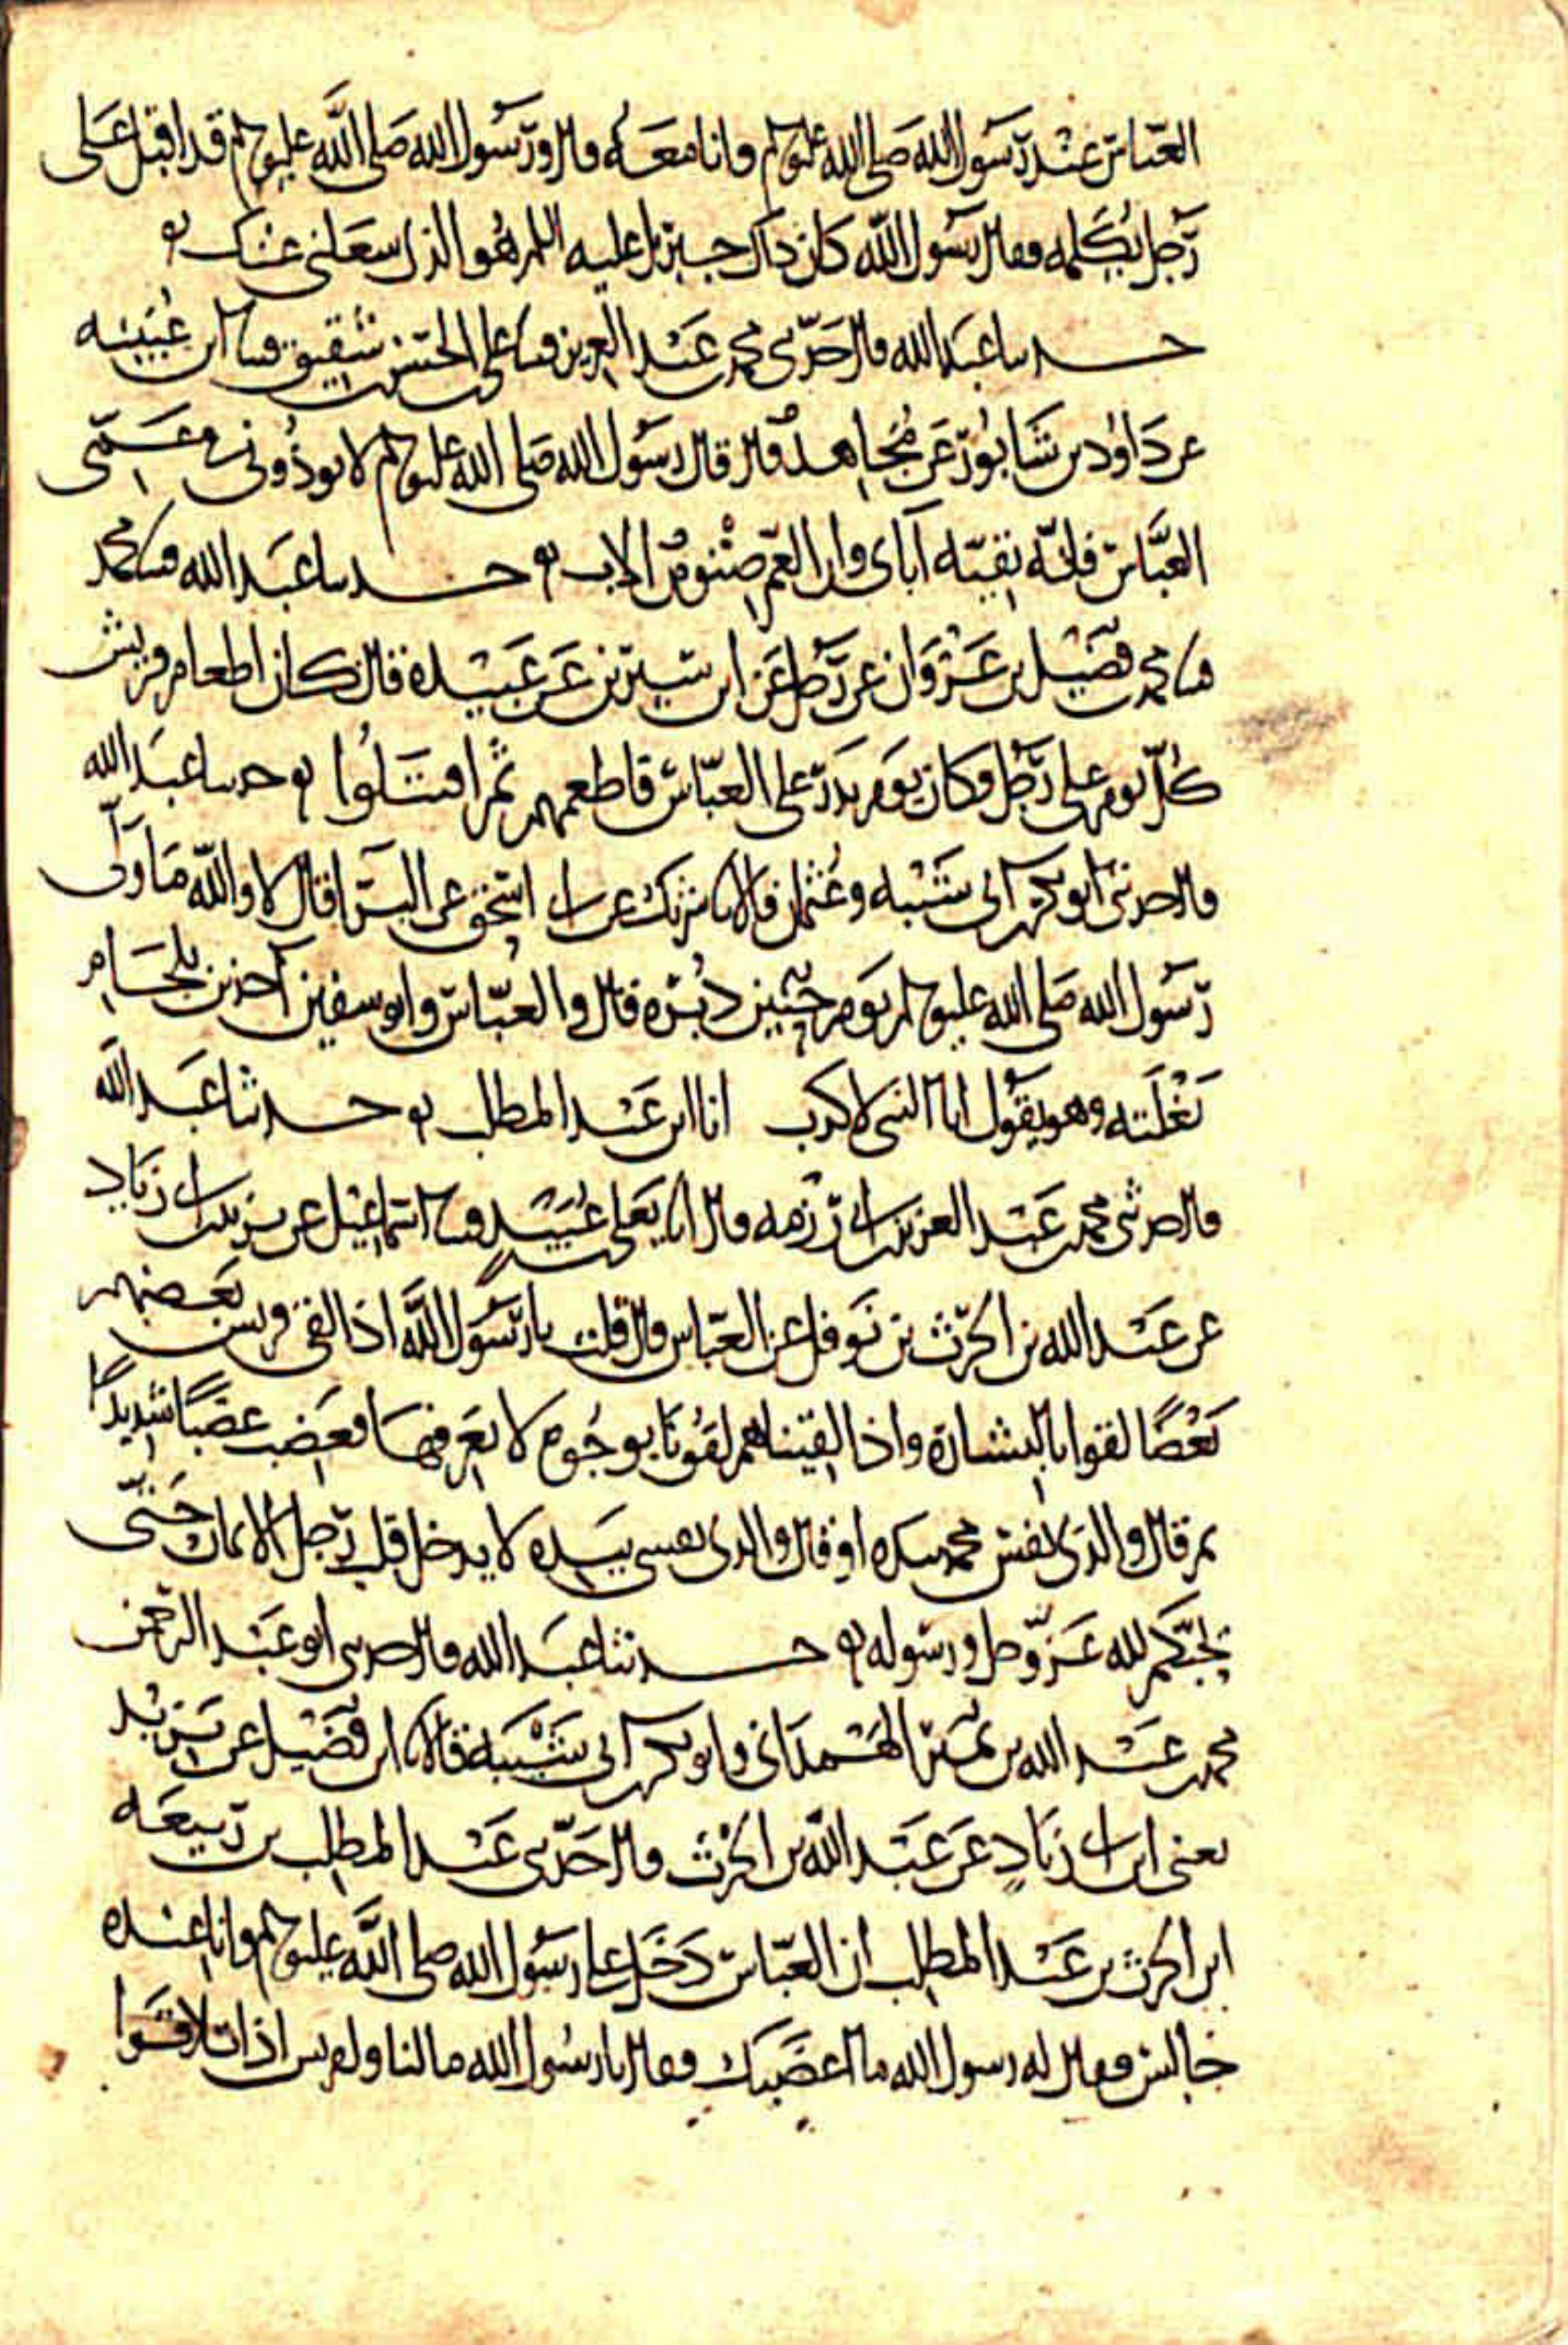 العباس عند رسول الله صلى الله عليه وسلم وانا معه قال ورسول الله صلى الله عليه وسلم قد اقبل على
رجل يكلمه فقال رسول الله كان ذاك جبريل عليه السلم هو الذي شغلني عنك
حدثنا عبد الله قال حدثني محمد بن عبد العزيز قثنا علي بن الحسن بن شقيق قثنا ابن عيينه
عن داود بن شابور عن مجاهد قال قال رسول الله صلى الله عليه وسلم لا توذوني في عمي
العباس فانه بقيه آباي وان العم صنو من الاب حدثنا عبد الله قثنا محمد
قثنا محمد بن فضيل بن غزوان عن رجل عن ابن سيرين عن عبيدة قال كان اطعام قريش
كل يوم على رجل فكان يوم بدر على العباس فاطعمهم ثم اقتتلوا حدثنا عبد الله
قال حدثني ابو بكر بن ابي شيبه وعثمان قالا نا شريك عن ابي اسحق عن البرا قال لا والله ما ولى
رسول الله صلى الله عليه وسلم يوم حنين دبره قال والعباس وابو سفين آخذين بلجام
بغلته وهو يقول انا النبي لا كذب انا ابن عبد المطلب حدثنا عبد الله
قال حدثني محمد بن عبد العزيز بن ابي رزمه قال انا يعلى بن عبيد قثنا اسماعيل عن يزيد بن ابي زياد
عن عبد الله بن الحرث بن نوفل عن العباس قال قلت يا رسول الله اذا لقي قريش بعضهم
بعضا لقوا بالبشارة واذا لقيناهم لقونا بوجوه لا نعرفها فغضب غضبا شديدا
ثم قال والذي نفس محمد بيده او قال والذي نفسي بيده لا يدخل قلب رجل الايمان حتى
يحبكم لله عز وجل ورسوله حدثنا عبد الله قال حدثني ابو عبد الرحمن
محمد بن عبد الله بن نمير الهمداني وابو بكر بن ابي شيبة قالا نا ابن فضيل عن يزيد
يعني ابن ابي زياد عن عبد الله بن الحرث قال حدثني عبد المطلب بن ربيعه
ابن الحرث بن عبد المطلب ان العباس دخل على رسول الله صلى الله عليه وسلم وانا عنده
جالس فقال له رسول الله ما اغضبك فقال يا رسول الله ما لنا ولقريش اذا تلاقوا